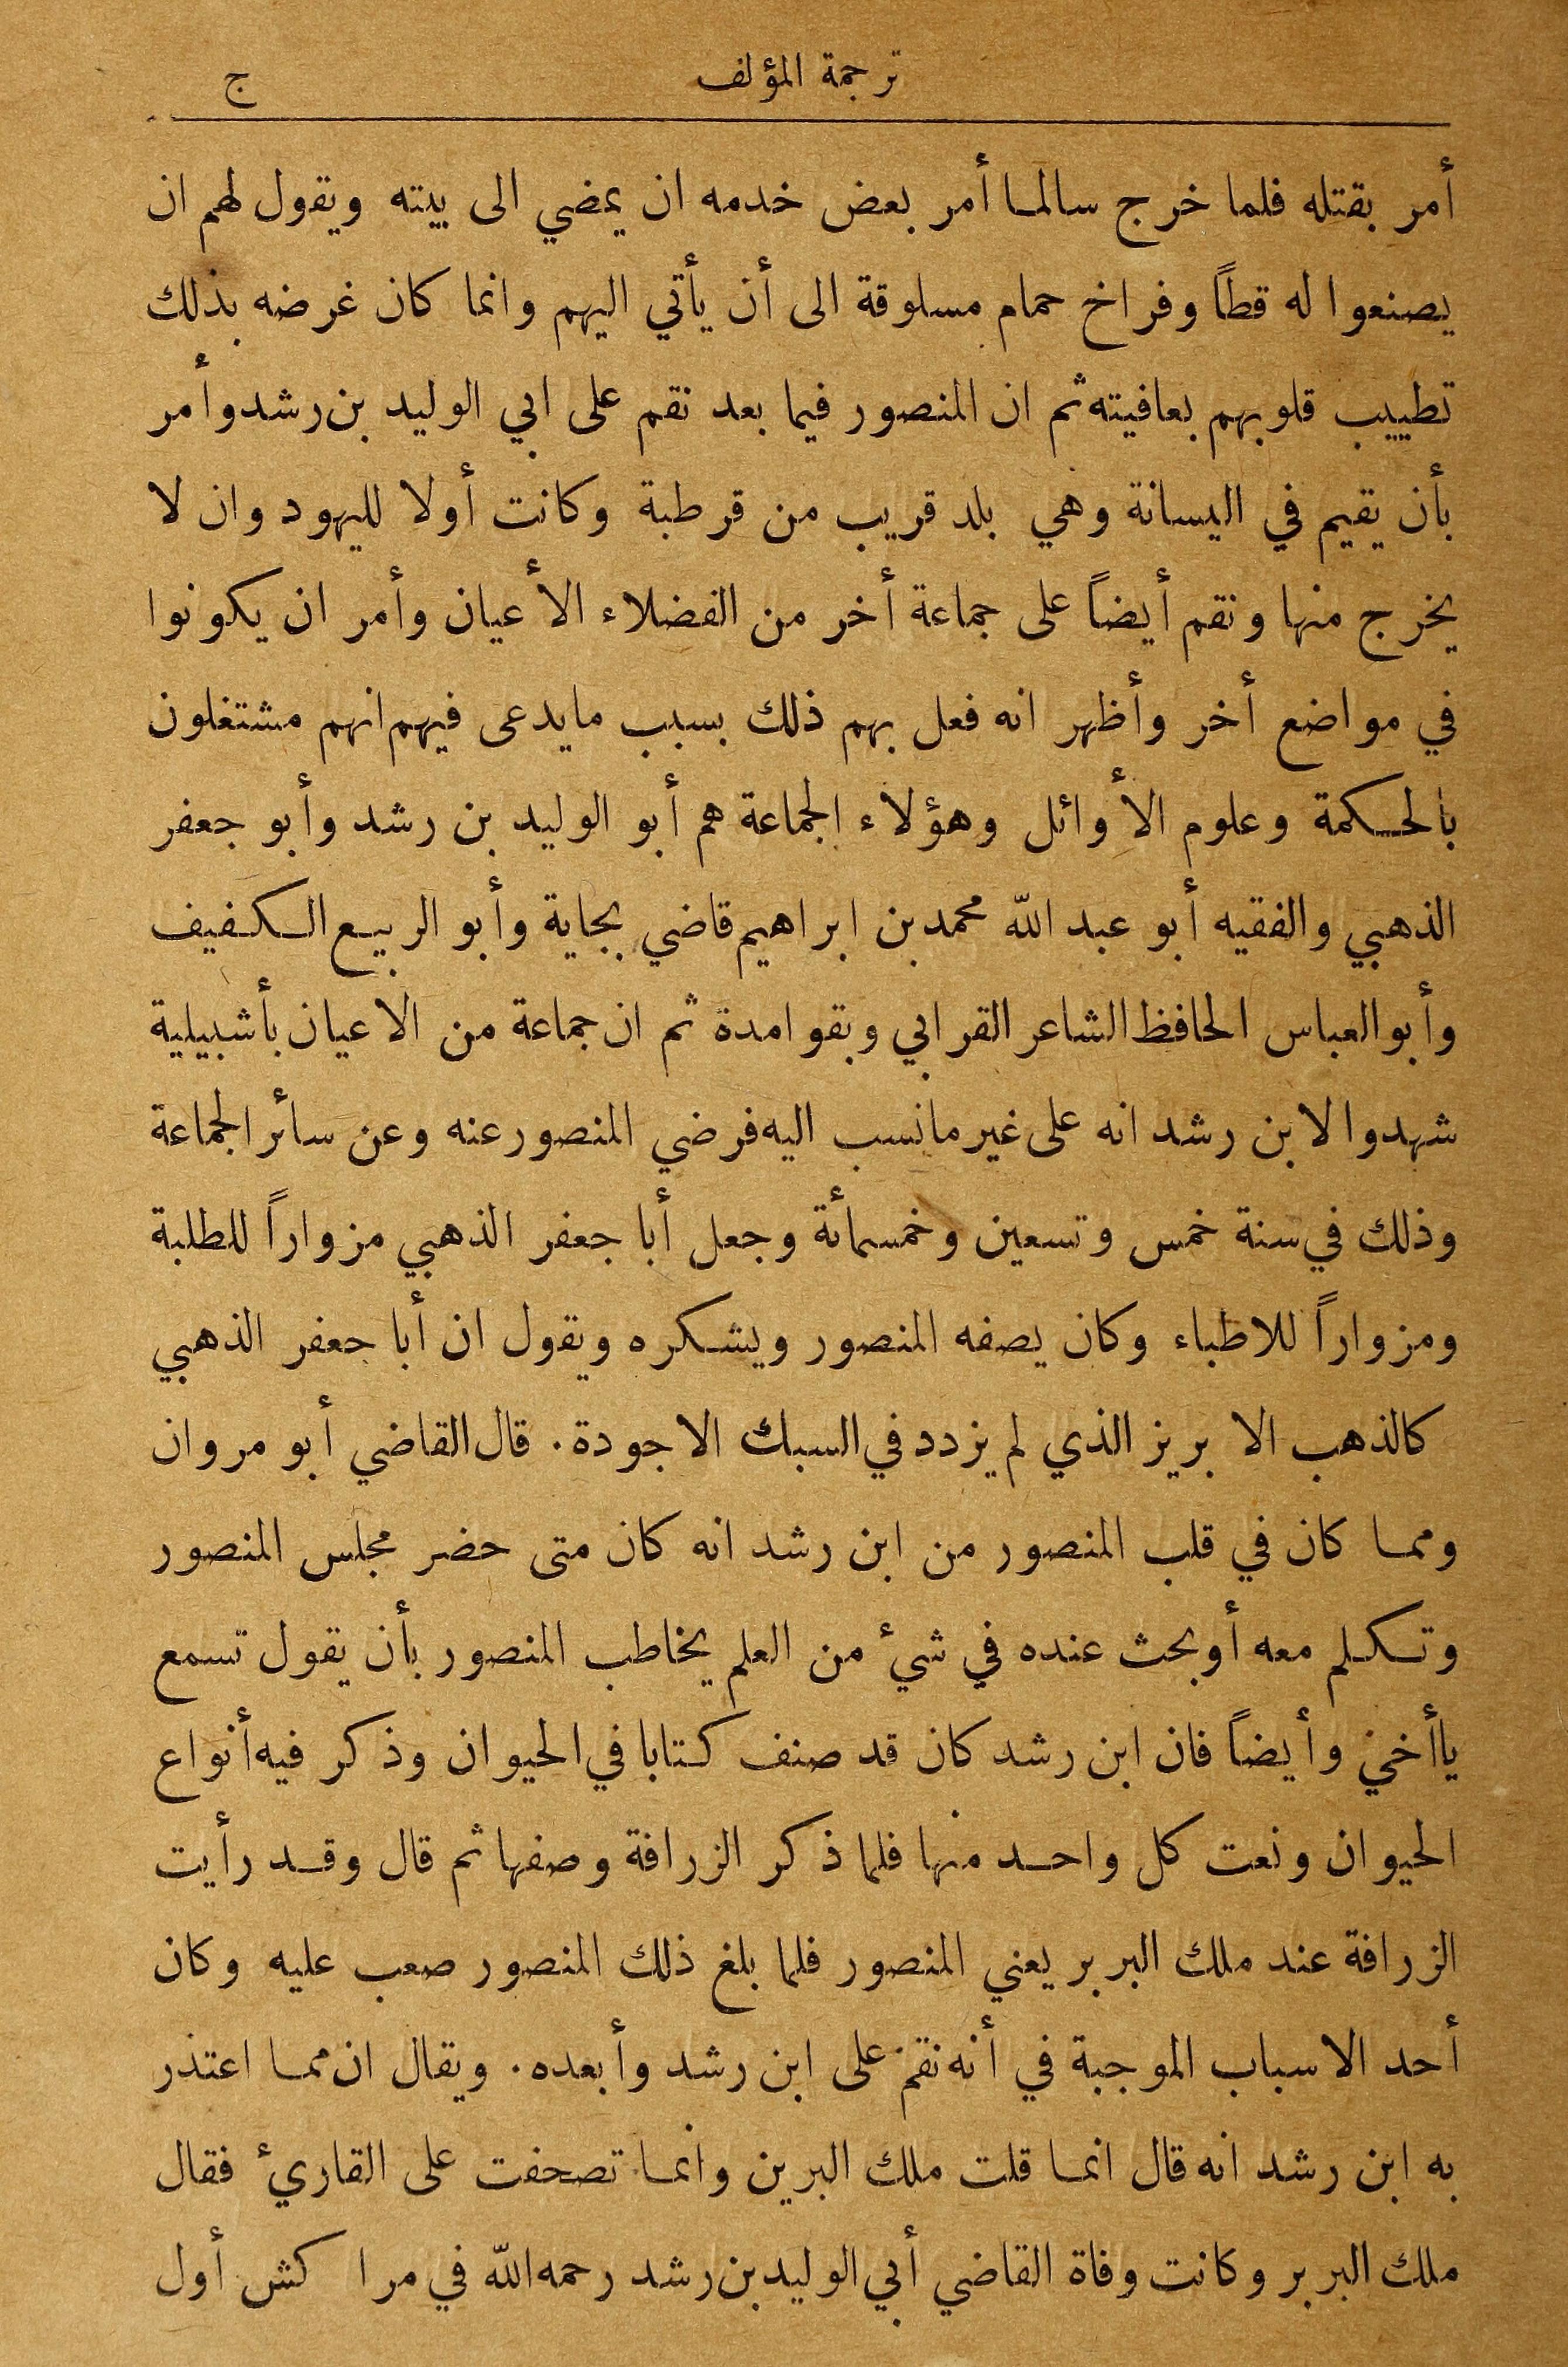 ترجمة المؤلف ج
أمر بقتله فلما خرج سالمـا أمر بعض خدمه ان يمضي الى بيته ويقول لهم ان
يصنعوا له قطاً وفراخ حمام مسلوقة الى أن يأتي اليهم وانما كان غرضه بذلك
تطييب قلوبهم بعافيته ثم ان المنصور فيما بعد نقم على ابي الوليد بن رشد وأمر
بأن يقيم في اليسانة وهي بلد قريب من قرطبة وكانت أولا لليهود وان لا
يخرج منها ونقم أيضاً على جماعة أخر من الفضلاء الأعيان وأمر ان يكونوا
في مواضع أخر وأظهر انه فعل بهم ذلك بسبب مايدعى فيهم انهم مشتغلون
بالحـكمة وعلوم الأوائل وهؤلاء الجماعة هم أبو الوليد بن رشد وأبو جعفر
الذهبي والفقيه أبو عبد الله محمد بن ابراهيم قاضي بجاية وأبو الربيع الـكـفيف
وأبو العباس الحافظ الشاعر القرابي وبقوا مدة ثم ان جماعة من الاعيان بأشبيلية
شهدوا لابن رشد انه على غير مانسب اليه فرضي المنصور عنه وعن سائر الجماعة
وذلك في سنة خمس وتسعين وخمسمائة وجعل أبا جعفر الذهبي مزواراً للطلبة
ومزواراً للاطباء وكان يصفه المنصور ويشـكره ويقول ان أبا جعفر الذهبي
كالذهب الابريز الذي لم يزدد في السبك الا جودة. قال القاضي أبو مروان
وممـا كان في قلب المنصور من ابن رشد انه كان متى حضر مجلس المنصور
وتـكـلم معه أو بحث عنده في شيء من العلم يخاطب المنصور بأن يقول تسمع
ياأخي وأيضاً فان ابن رشد كان قد صنف كـتابا في الحيوان وذكر فيه أنواع
الحيوان ونعت كل واحـد منها فلما ذكر الزرافة وصفها ثم قال وقـد رأيت
الزرافة عند ملك البربر يعني المنصور فلما بلغ ذلك المنصور صعب عليه وكان
أحد الاسباب الموجبة في أنه نقم على ابن رشد وأبعده. ويقال ان ممـا اعتذر
به ابن رشد انه قال انمـا قلت ملك البرين وانمـا تصحفت على القاريء فقال
ملك البربر وكانت وفاة القاضي أبي الوليد بن رشد رحمه الله في مراكش أول